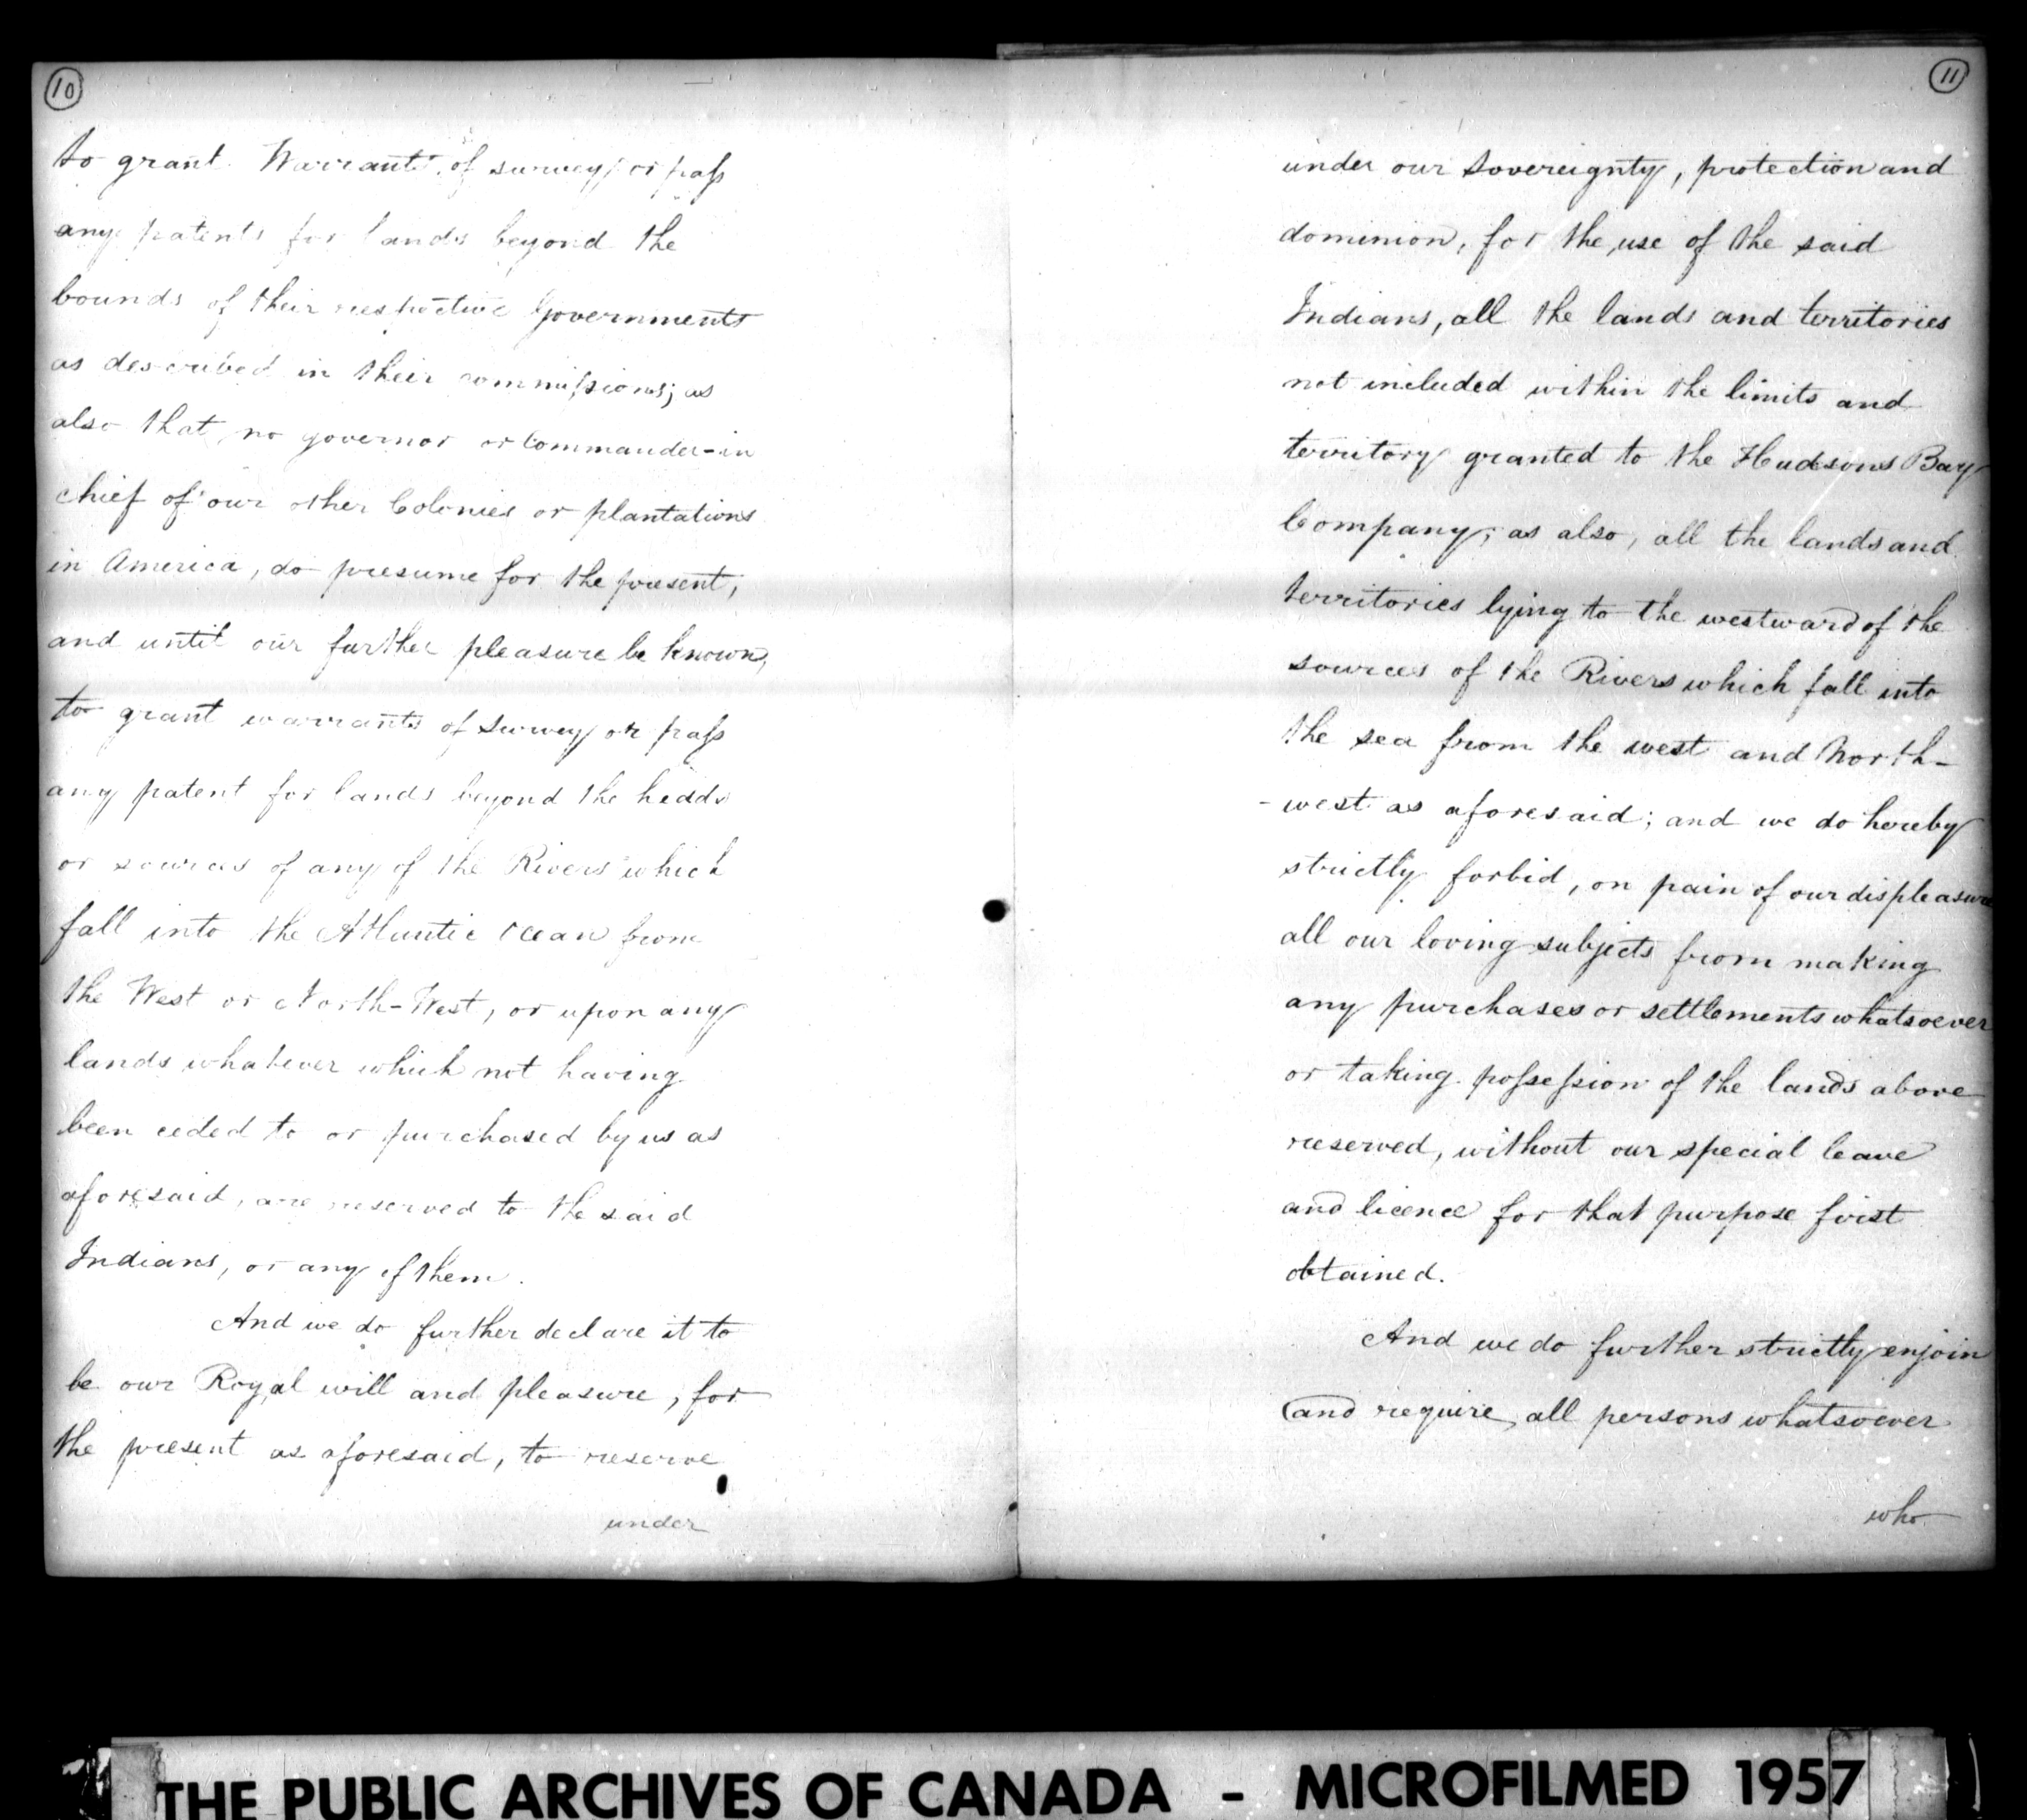 10
to grant Warrants of survey, or pass
any patents for lands beyond the
bounds of their respective Governments
as described in their commissions; as
also that no governor or Commander-in
chief of our other Colonies or plantations
in America, do presume for the present,
and until our further pleasure be known,
to grant warrants of survey or pass
any patent for lands beyond the heads
or sources of any of the Rivers which
fall into the Atlantic Ocean from
the West or North-West, or upon any
lands whatever which not having
been ceded to or purchased by us as
aforesaid, are reserved to the said
Indians, or any of them.
And we do further declare it to
be our Royal will and pleasure, for
the present as aforesaid, to reserve
under
11
under our Sovereignty, protection and
dominion, for the use of the said
Indians, all the lands and territories
not included within the limits and
territory granted to the Hudsons Bay
Company; as also, all the lands and
territories lying to the westward of the
sources of the Rivers which fall into
the sea from the west and North-
-west as aforesaid; and we do hereby
strictly forbid, on pain of our displeasure
all our loving subjects from making
any purchases or settlements whatsoever
or taking possession of the lands above
reserved, without our special leave
and licence for that purpose first
obtained.
And we do further strictly enjoin
and require, all persons whatsoever
who
THE PUBLIC ARCHIVES OF CANADA - MICROFILMED 1957